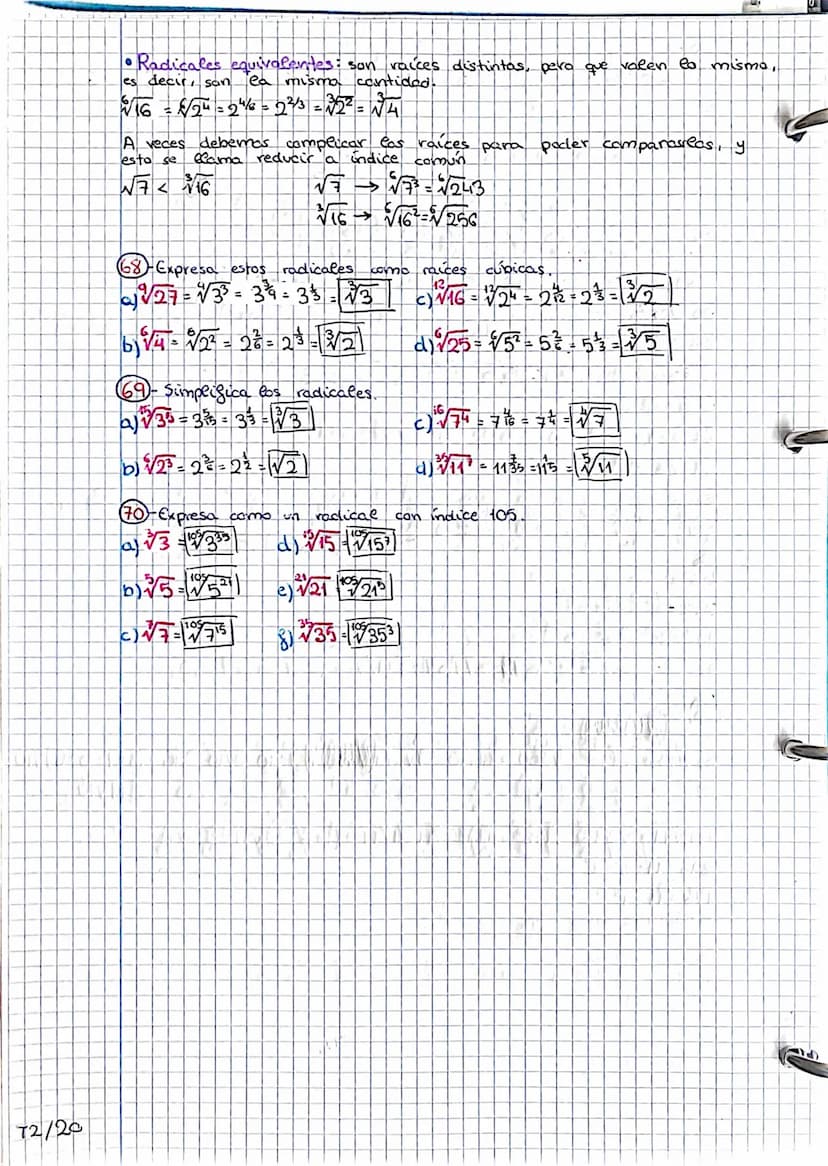 • Radicales equivalentes: son raíces distintas, pero que valen lo mismo,
es decir, son la misma cantidad.
⁶√16 = ⁶√2⁴ = 2^4/6 = 2^2/3 = ³√2² = ³√4
A veces debemos complicar las raíces para poder compararlas, y
esto se llama reducir a índice común
√7 < ³√16 √7 → ⁶√7³ = ⁶√243
³√16 → ⁶√16² = ⁶√256
68-Expresa estos radicales como raíces cúbicas.
a) ⁹√27 = ⁹√3³ = 3^3/9 = 3^1/3 = ³√3 c) ¹²√16 = ¹²√2⁴ = 2^4/12 = 2^1/3 = ³√2
b) ⁶√4 = ⁶√2² = 2^2/6 = 2^1/3 = ³√2 d) ⁶√25 = ⁶√5² = 5^2/6 = 5^1/3 = ³√5
69-Simplifica los radicales.
a) ¹⁵√3⁵ = 3^5/15 = 3^1/3 = ³√3 c) ¹⁶√7⁴ = 7^4/16 = 7^1/4 = ⁴√7
b) ⁶√2³ = 2^3/6 = 2^1/2 = √2 d) ³⁵√11⁷ = 11^7/35 = 11^1/5 = ⁵√11
70-Expresa como un radical con índice 105.
a) ³√3 = ¹⁰⁵√3³⁵ d) ¹⁵√15 = ¹⁰⁵√15⁷
b) ⁵√5 = ¹⁰⁵√5²¹ e) ²¹√21 ¹⁰⁵√21⁵
c) ⁷√7 = ¹⁰⁵√7¹⁵ f) ³⁵√35 = ¹⁰⁵√35³
T2/20